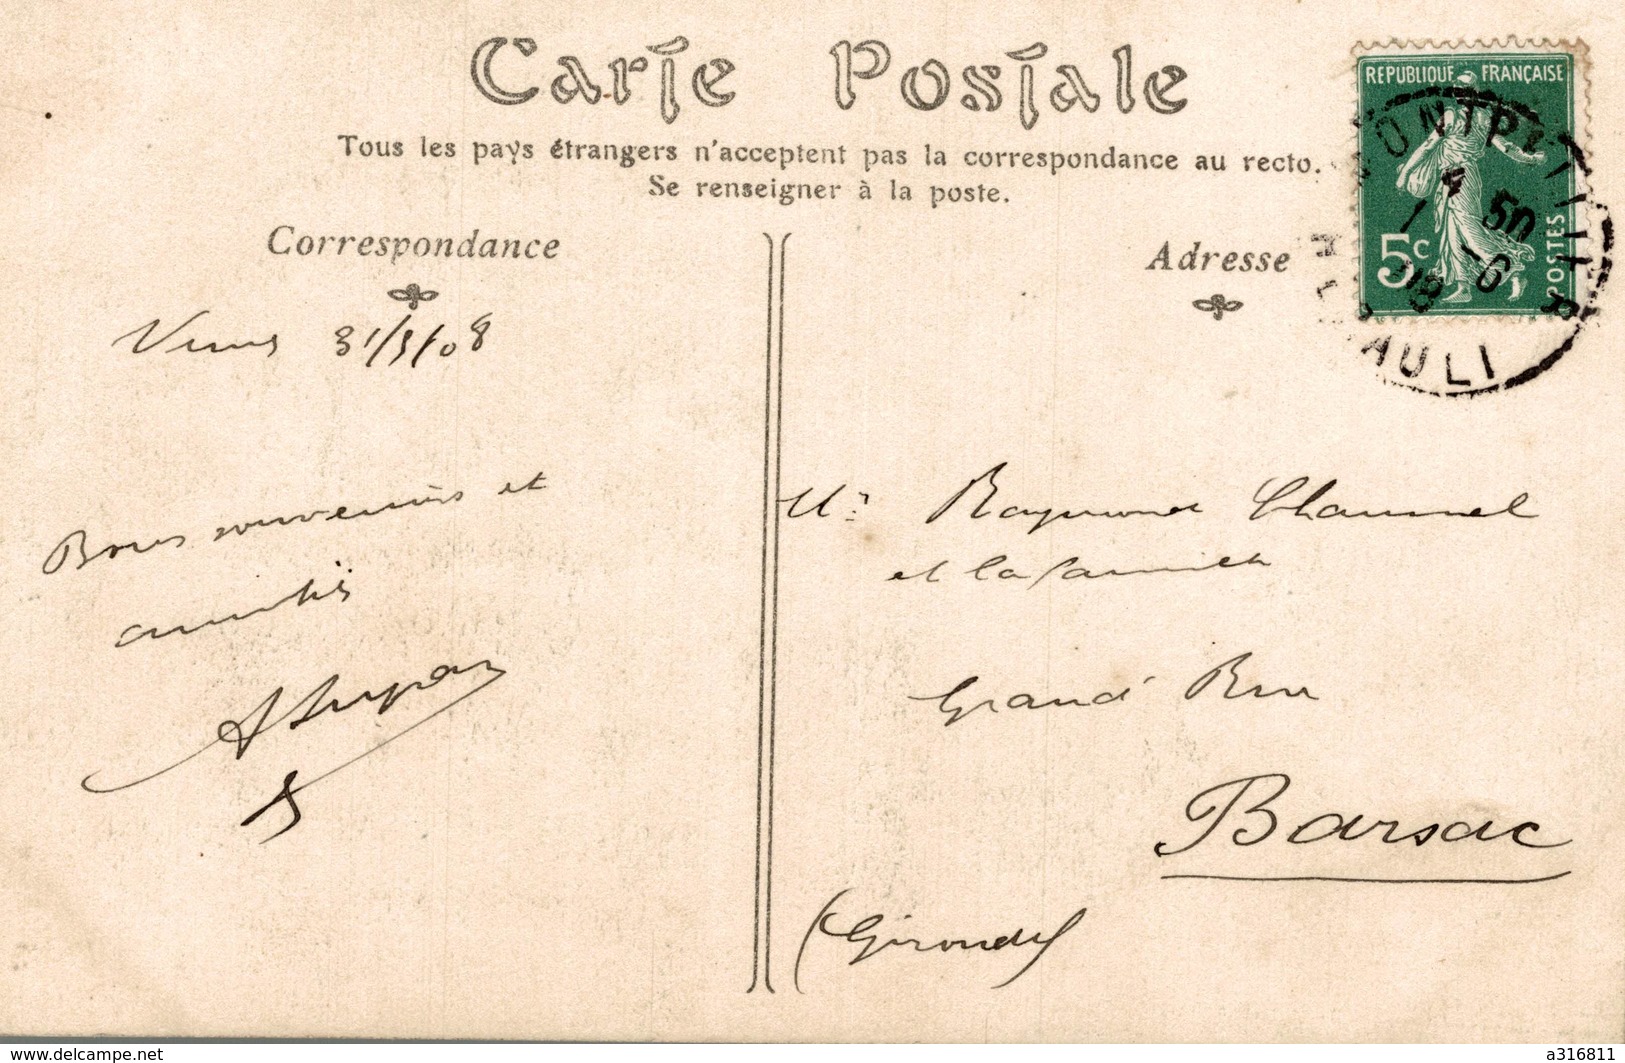 Carte Postale
Tous les pays étrangers n'acceptent pas la correspondance au recto.
Se renseigner à la poste.
Correspondance
Adresse
REPUBLIQUE FRANÇAISE
5c
POSTES
MONTPELLIER
HERAULT
31/5/08
Bons souvenirs et
amitiés
Mr Raymond
et la famille
Grand Rue
Barsac
(Gironde)
www.delcampe.net
a316811